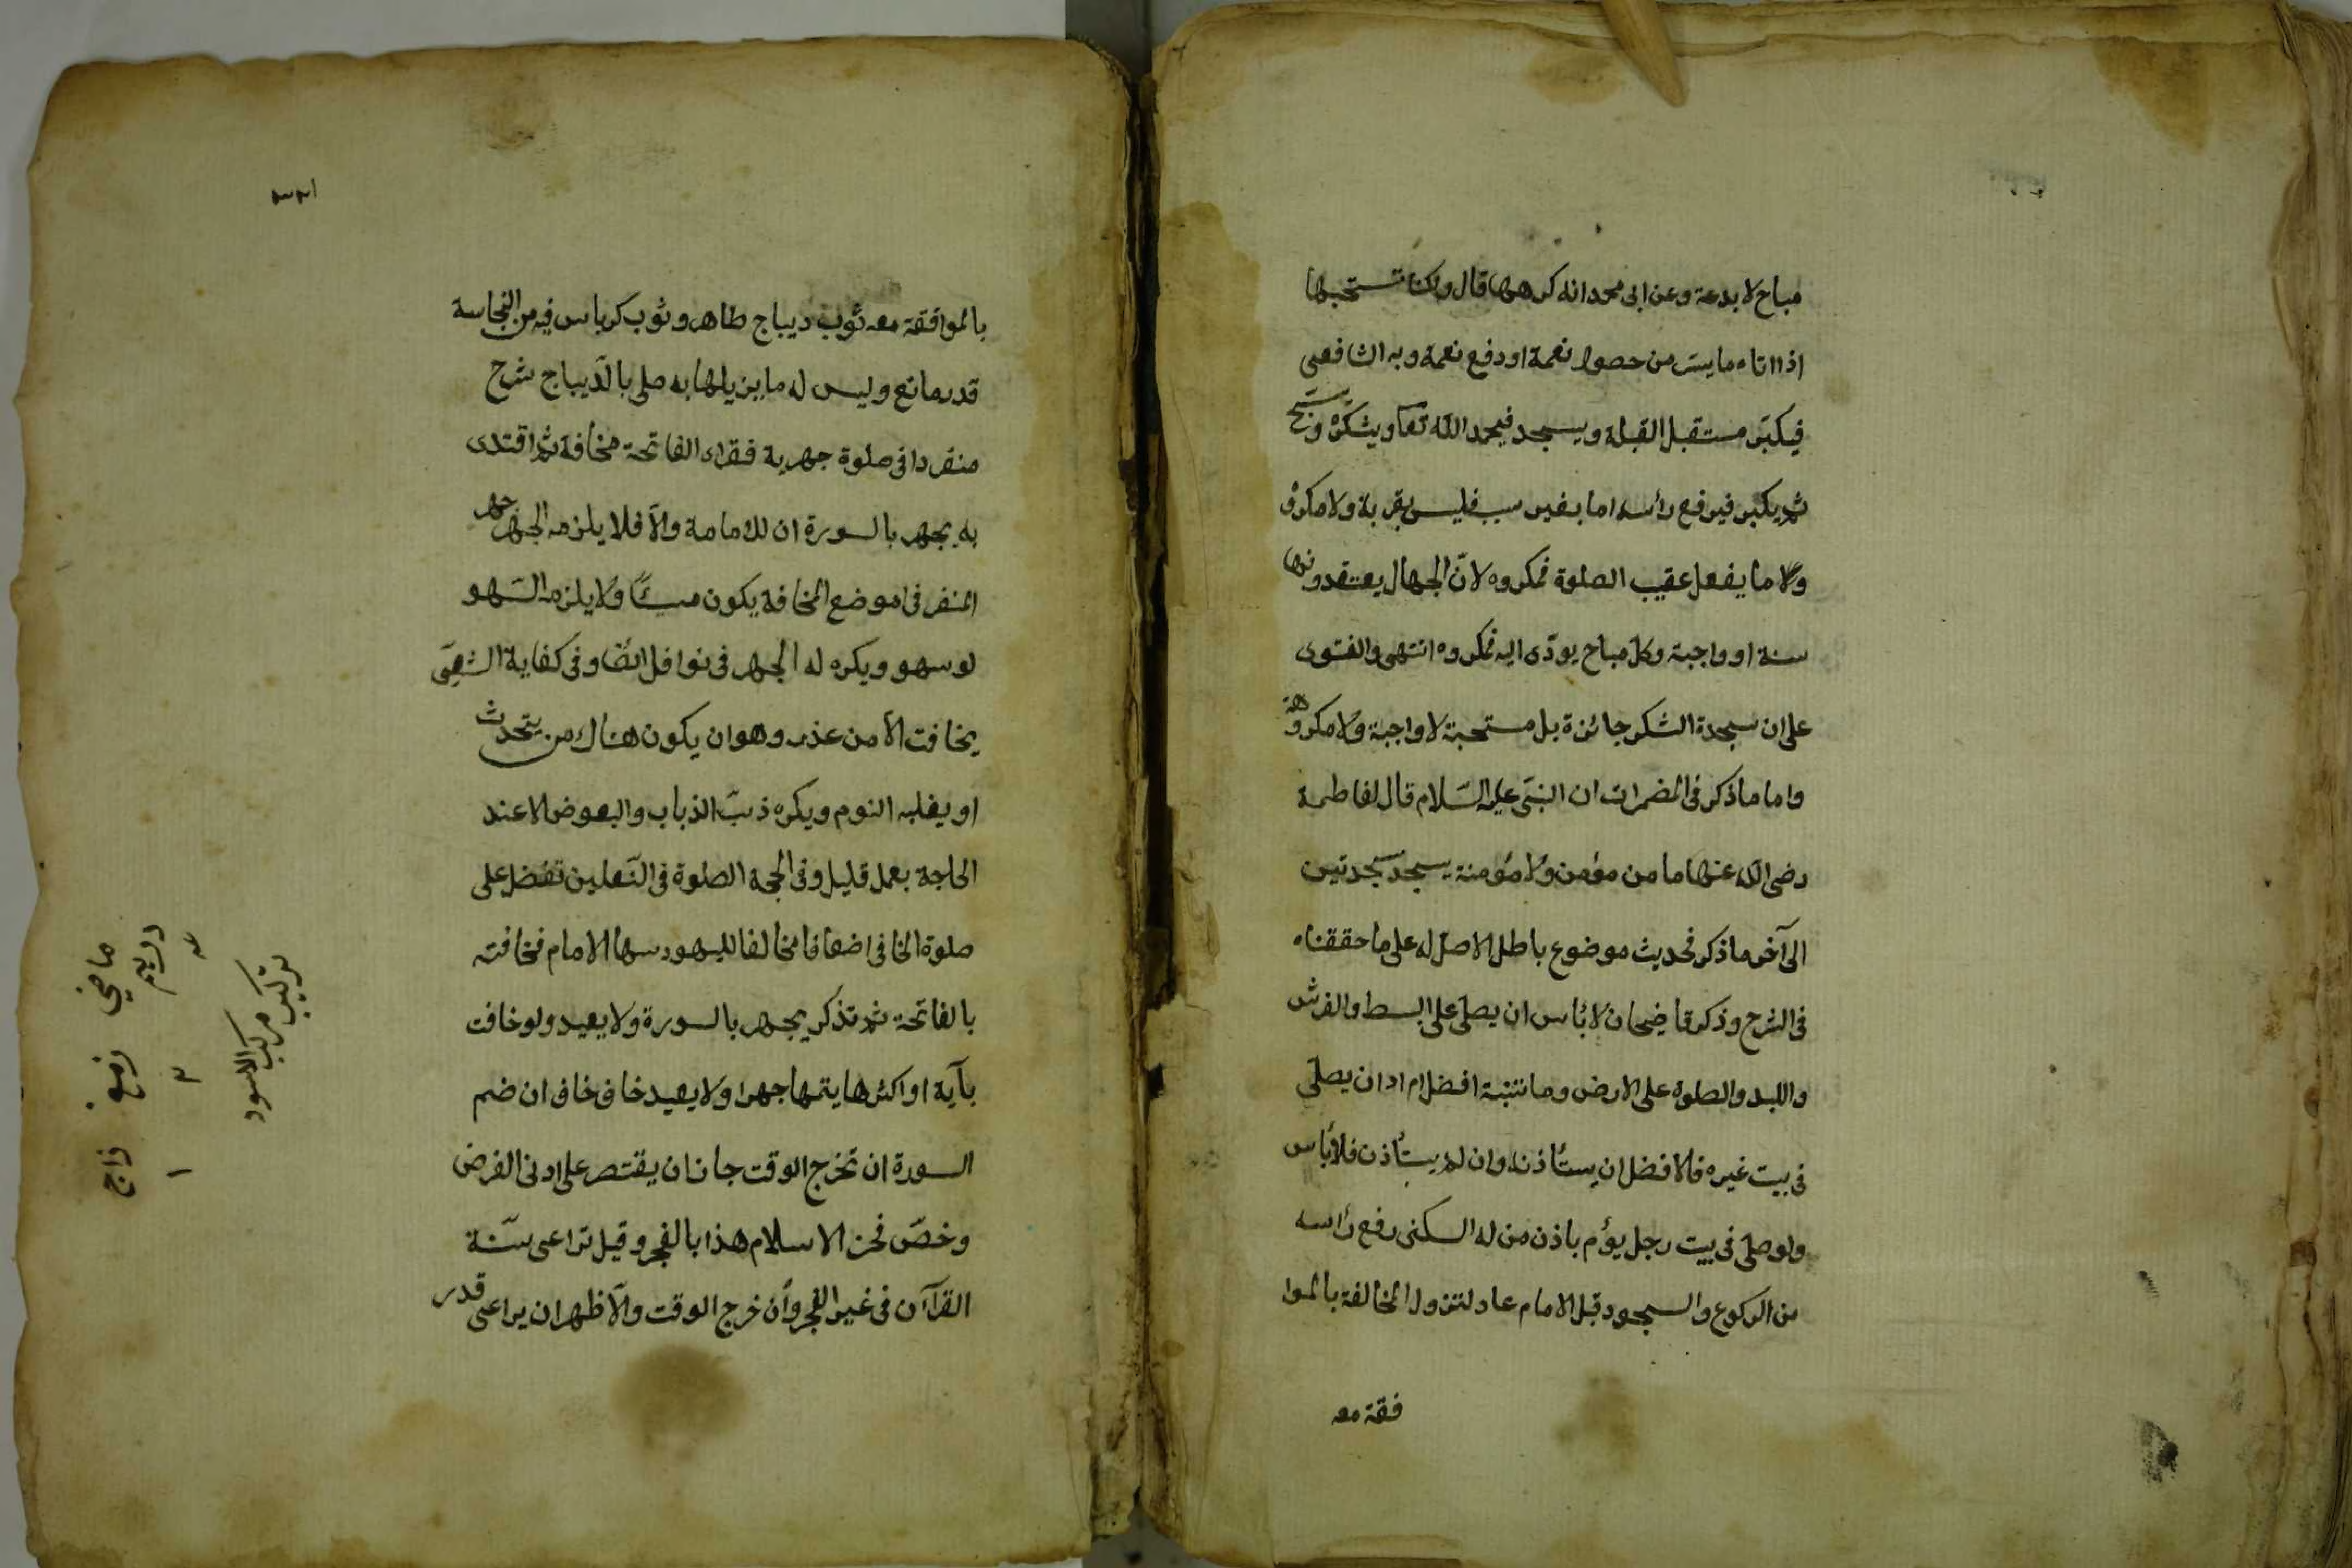 مباح لا بدعة وعن ابى محمد انه كرهها قال ولكنا نستحبها
اذا اتاه ما يسر من حصول نعمة او دفع نعمة وبه الشافعى
فيكبّر مستقبل القبلة ويسجد فيحمد الله تعا ويشكره ويسبّح
ثم يكبر فيرفع رأسه اما بغير سبب فليس بقربة ولا مكروه
ولا ما يفعل عقيب الصلوة فمكروه لانّ الجهال يعتقدونها
سنة او واجبة وكل مباح يودّى اليه فمكروه انتهى والفتوى
على ان سجدة الشكر جائزة بل مستحبة لا واجبة ولا مكروهة
واما ما ذكر فى المضمرات ان النبىّ عليه السّلام قال لفاطمة
رضى الله عنها ما من مؤمن ولا مؤمنة يسجد سجدتين
الى آخر ما ذكر فحديث موضوع باطل لا اصل له على ما حققناه
فى الشرح وذكر قاضيخان لا بأس ان يصلى على البسط والفرش
واللبد والصلوة على الارض وما تنبته افضل ام اراد ان يصلّى
فى بيت غيره فالافضل ان يستأذنه وان لم يستأذن فلا بأس
ولو صلى فى بيت رجل يؤم باذن من له السكنى رفع رأسه
من الركوع والسجود قبل الامام عاد لتزول المخالفة بالموا
فقة معه
٣٢١
بالموافقة معه ثوب ديباج طاهر وثوب كرباس فيه من النجاسة
قدر مانع وليس له ما يزيلها به صلى بالدّيباج شرح
منفردا فى صلوة جهرية فقراء الفاتحة مخافة ثم اقتدى
به يجهر بالسورة ان للامامة والاّ فلا يلزمه الجهر جهر
المنفر فى موضع المخافة يكون مسيئًا ولا يلزمه السّهو
لو سهو ويكره له الجهر فى نوافل ايضًا وفى كفاية الشعبى
يخافت الاّ من عذر وهو ان يكون هناك من يتحدث
او يغلبه النوم ويكره ذبّ الذباب والبعوض الا عند
الحاجة بعمل قليل وفى الحجة الصلوة فى النّعلين تفضل على
صلوة الحافى اضعافا مخالفا لليهود سها الامام فخافته
بالفاتحة ثم تذكر يجهر بالسورة ولا يعيد ولو خافت
بآية او اكثرها يتمها جهرا ولا يعيد خاف خاف ان ضم
السورة ان تخرج الوقت جاز ان يقتصر على ادنى الفرض
وخصّ فخر الاسلام هذا بالفجر وقيل تراعى سنّة
القرآن فى غير الفجر وان خرج الوقت والاّظهر ان يراعى قدر
تركيب مركب الاسود
زاج
١